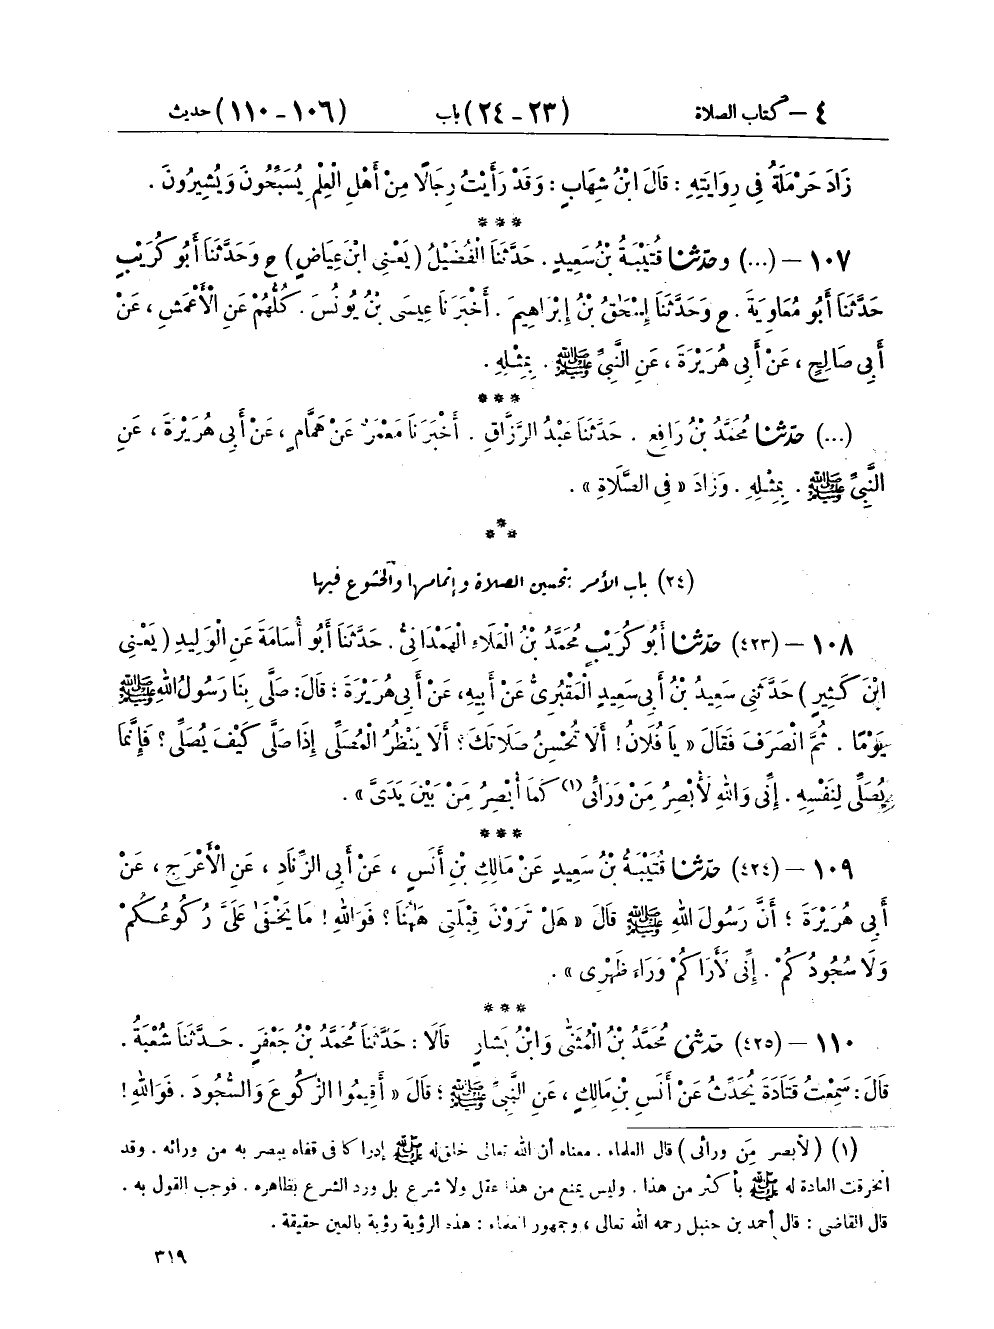 ٤ – كتاب الصلاة (٢٣ – ٢٤) باب (١٠٦ – ١١٠) حديث
زَادَ حَرْمَلَةُ فِي رِوَايَتِهِ : قَالَ ابْنُ شِهَابٍ : وَقَدْ رَأَيْتُ رِجَالًا مِنْ أَهْلِ الْعِلْمِ يُسَبِّحُونَ وَيُشِيرُونَ .
***
١٠٧ – (...) وحدّثنا قُتَيْبَةُ بْنُ سَعِيدٍ . حَدَّثَنَا الْفُضَيْلُ ( يَعْنِي ابْنَ عِيَاضٍ ) ح وَحَدَّثَنَا أَبُو كُرَيْبٍ
حَدَّثَنَا أَبُو مُعَاوِيَةَ . ح وَحَدَّثَنَا إِسْحَٰقُ بْنُ إِبْرَاهِيمَ . أَخْبَرَنَا عِيسَى بْنُ يُونُسَ . كُلُّهُمْ عَنِ الْأَعْمَشِ ، عَنْ
أَبِي صَالِحٍ ، عَنْ أَبِي هُرَيْرَةَ ، عَنِ النَّبِيِّ ﷺ . بِمِثْلِهِ .
***
(...) حدّثنا مُحَمَّدُ بْنُ رَافِعٍ . حَدَّثَنَا عَبْدُ الرَّزَّاقِ . أَخْبَرَنَا مَعْمَرٌ عَنْ هَمَّامٍ ، عَنْ أَبِي هُرَيْرَةَ ، عَنِ
النَّبِيِّ ﷺ . بِمِثْلِهِ . وَزَادَ « فِي الصَّلَاةِ » .
***
(٢٤) باب الأمر بتحسين الصلاة وإتمامها والخشوع فيها
١٠٨ – (٤٢٣) حدّثنا أَبُو كُرَيْبٍ مُحَمَّدُ بْنُ الْعَلَاءِ الْهَمْدَانِيُّ . حَدَّثَنَا أَبُو أُسَامَةَ عَنِ الْوَلِيدِ ( يَعْنِي
ابْنَ كَثِيرٍ ) حَدَّثَنِي سَعِيدُ بْنُ أَبِي سَعِيدٍ الْمَقْبُرِيُّ عَنْ أَبِيهِ، عَنْ أَبِي هُرَيْرَةَ ؛ قَالَ: صَلَّى بِنَا رَسُولُ اللهِ ﷺ
يَوْمًا . ثُمَّ انْصَرَفَ فَقَالَ « يَا فُلَانُ ! أَلَا تُحْسِنُ صَلَاتَكَ ؟ أَلَا يَنْظُرُ الْمُصَلِّي إِذَا صَلَّى كَيْفَ يُصَلِّي ؟ فَإِنَّمَا
يُصَلِّي لِنَفْسِهِ . إِنِّي وَاللهِ لَأُبْصِرُ مِنْ وَرَائِي(١) كَمَا أُبْصِرُ مِنْ بَيْنَ يَدَيَّ » .
***
١٠٩ – (٤٢٤) حدّثنا قُتَيْبَةُ بْنُ سَعِيدٍ عَنْ مَالِكِ بْنِ أَنَسٍ ، عَنْ أَبِي الزِّنَادِ ، عَنِ الْأَعْرَجِ ، عَنْ
أَبِي هُرَيْرَةَ ؛ أَنَّ رَسُولَ اللهِ ﷺ قَالَ « هَلْ تَرَوْنَ قِبْلَتِي هَٰهُنَا ؟ فَوَاللهِ ! مَا يَخْفَىٰ عَلَيَّ رُكُوعُكُمْ
وَلَا سُجُودُكُمْ . إِنِّي لَأَرَاكُمْ وَرَاءَ ظَهْرِي » .
***
١١٠ – (٤٢٥) حدّثني مُحَمَّدُ بْنُ الْمُثَنَّىٰ وَابْنُ بَشَّارٍ قَالَا : حَدَّثَنَا مُحَمَّدُ بْنُ جَعْفَرٍ . حَدَّثَنَا شُعْبَةُ .
قَالَ : سَمِعْتُ قَتَادَةَ يُحَدِّثُ عَنْ أَنَسِ بْنِ مَالِكٍ ، عَنِ النَّبِيِّ ﷺ ؛ قَالَ « أَقِيمُوا الرُّكُوعَ وَالسُّجُودَ . فَوَاللهِ !
(١) ( لأبصر من ورائي ) قال العلماء . معناه أن الله تعالى خلق له ﷺ إدراكا في قفاه يبصر به من ورائه . وقد
انخرقت العادة له ﷺ بأكثر من هذا . وليس يمنع من هذا عقل ولا شرع بل ورد الشرع بظاهره . فوجب القول به .
قال القاضي : قال أحمد بن حنبل رحمه الله تعالى ، وجمهور العلماء : هذه الرؤية رؤية بالعين حقيقة .
٣١٩